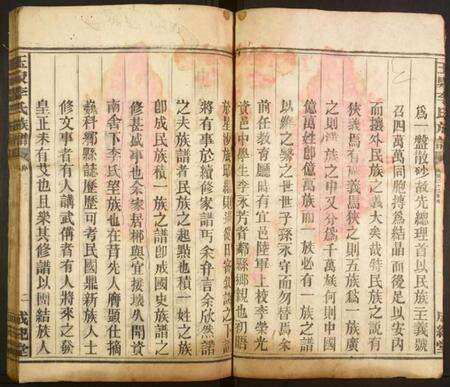 為一盤散砂故先總理首以民族主義號
召四萬萬同胞摶為結晶而後足以安內
而攘外民族之義大矣哉然民族之說有
狹義焉有廣義焉狹之則五族為一族廣
之則漢族之中又分為千萬族何則中國
億萬姓即億萬族而一族必有一族之譜
以維之繫之世世子孫永守而勿替焉余
前任教育廳時有宜邑陸軍上校李榮光
資邑中學生李永芳者鄰縣鄉親也初語
將有事於續修家譜丐余弁言余欣然謂
之夫族譜者民族之起點也積一姓之族
即成民族積一族之譜即成國史族譜之
修甚盛事也余家居郴與宜接壤久聞資
南舍下李氏望族也在昔先人膺顯仕摘
巍科鄉縣誌歷歷可考民國鼎新族人士
修文事者有人講武備者有人將來之發
皇正未有艾也且樂其修譜以團結族人
李氏族譜
二
成紀堂